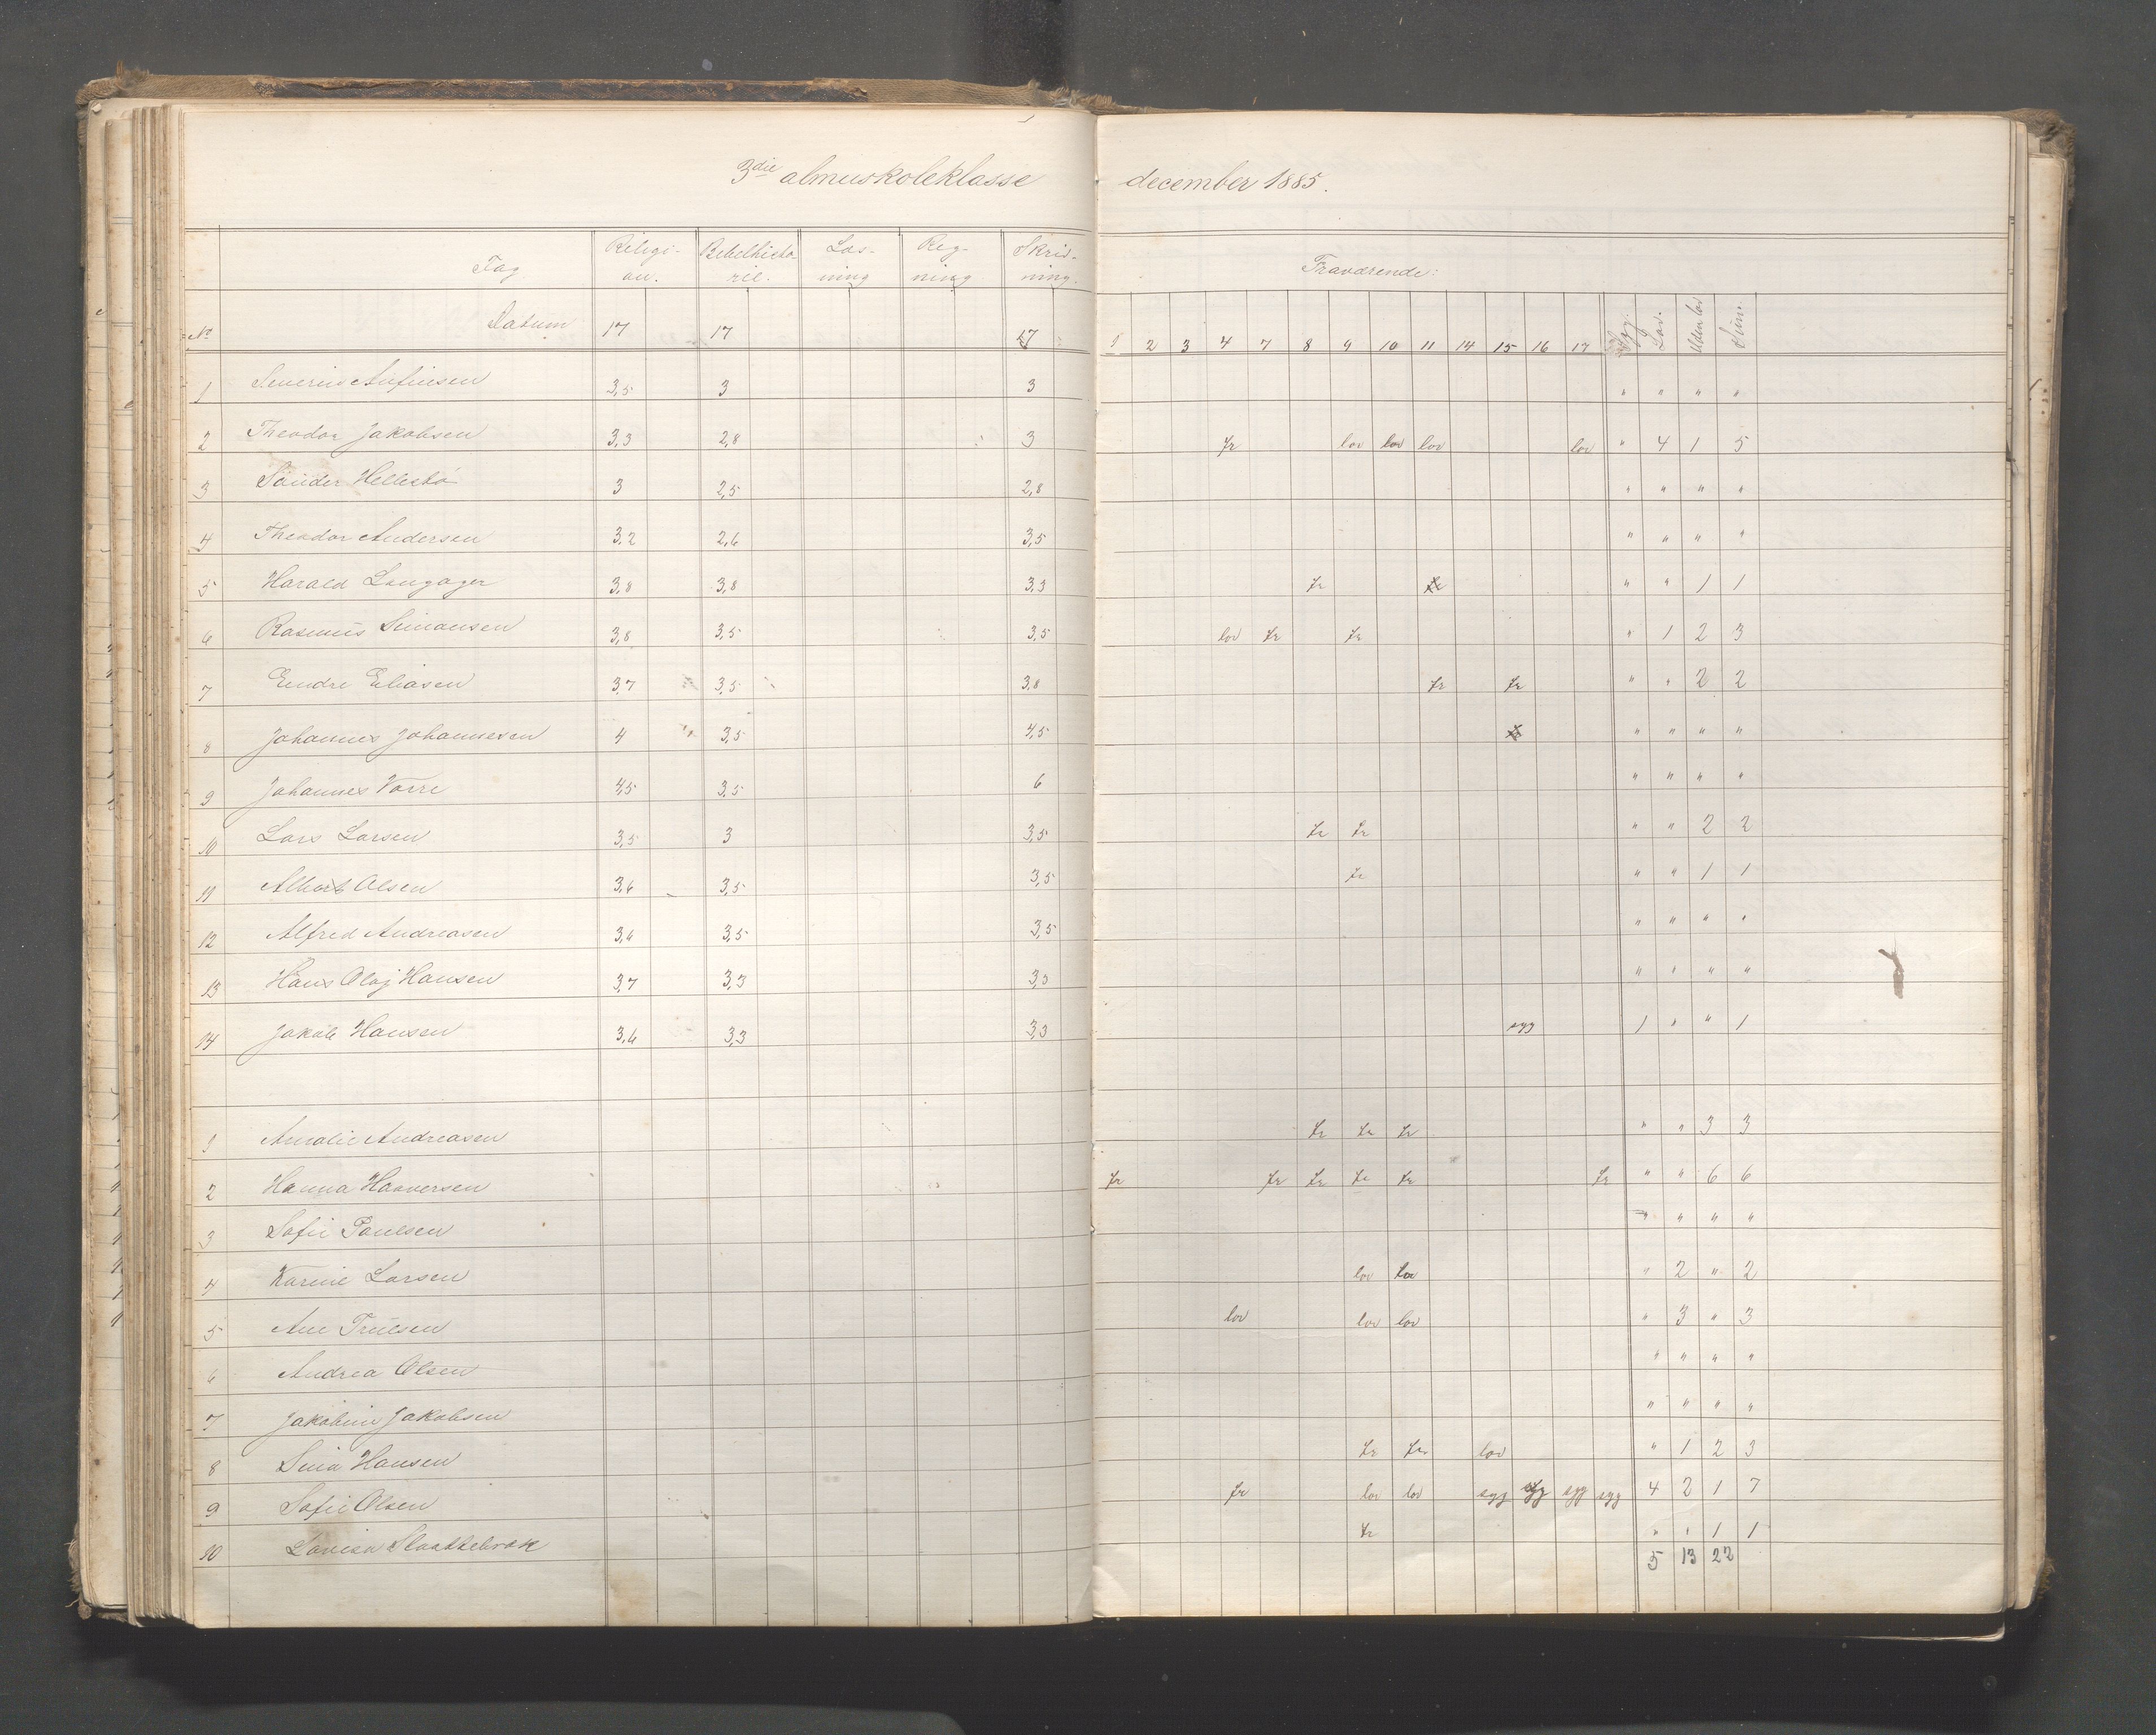 3die almueskoleklasse december 1885.
Fag Religi- Bibelhisto Læs- Reg- Skriv- Fraværende:
on. rie. ning ning ning.
No Datum 17 17 17 1 2 3 4 7 8 9 10 11 14 15 16 17 Syg. Lov. Uden lov Sum.
1 Severin Anfinsen 3,5 3 3 " " " "
2 Theodor Jakobsen 3,3 2,8 3 fr lov lov lov lov " 4 1 5
3 Sønder Hellestø 3 2,5 2,8 " " " "
4 Theodor Andersen 3,2 2,6 3,5 " " " "
5 Harald Langager 3,8 3,8 3,3 fr fr " " 1 1
6 Rasmus Simonsen 3,8 3,5 3,5 lov fr fr " 1 2 3
7 Endre Eliasen 3,7 3,5 3,8 fr fr " " 2 2
8 Johannes Johannesen 4 3,5 4,5 " " " "
9 Johannes Vorre 4,5 3,5 6 " " " "
10 Lars Larsen 3,5 3 3,5 fr fr " " 2 2
11 Albert Olsen 3,6 3,5 3,5 fr " " 1 1
12 Alfred Andreasen 3,6 3,5 3,5 " " " "
13 Hans Olaj Hansen 3,7 3,3 3,3 " " " "
14 Jakob Hansen 3,6 3,3 3,3 syg 1 " " 1
1 Amalie Andreasen fr fr fr " " 3 3
2 Hanna Haaversen fr fr fr fr fr fr " " 6 6
3 Sofie Paulsen " " " "
4 Karine Larsen lov lov " 2 " 2
5 Ane Trulsen lov lov lov " 3 " 3
6 Andrea Olsen " " " "
7 Jakobine Jakobsen " " " "
8 Sina Hansen fr fr lov " 1 2 3
9 Sofie Olsen fr lov lov syg syg syg syg 4 2 1 7
10 Lovisa Slaattebrak fr " " 1 1
5 13 22